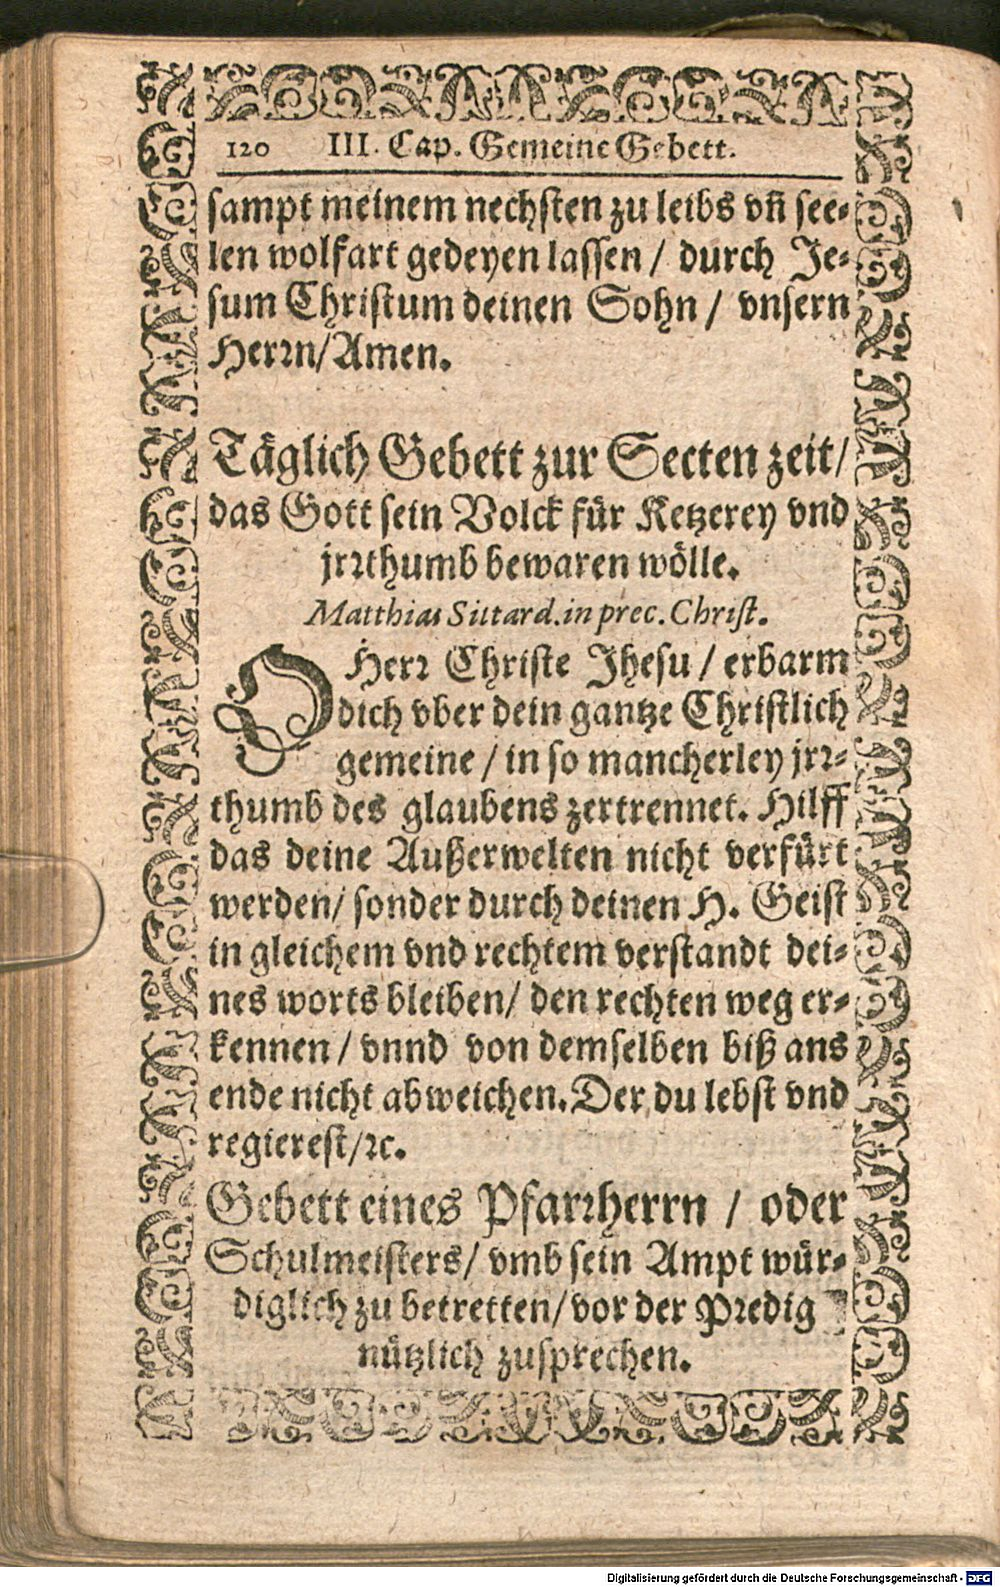 120 III. Cap. Gemeine Gebett.
sampt meinem nechsten zu leibs vñ see⸗
len wolfart gedeyen lassen / durch Je⸗
sum Christum deinen Sohn / vnsern
Herꝛn/Amen.
Täglich Gebett zur Secten zeit/
das Gott sein Volck für Ketzerey vnd
jrꝛthumb bewaren wölle.
Matthias Sittard. in prec. Christ.
O Herꝛ Christe Jhesu / erbarm
dich vber dein gantze Christlich
gemeine / in so mancherley jrꝛ⸗
thumb des glaubens zertrennet. Hilff
das deine Außerwelten nicht verfürt
werden/ sonder durch deinen H. Geist
in gleichem vnd rechtem verstandt dei⸗
nes worts bleiben/ den rechten weg er⸗
kennen / vnnd von demselben biß ans
ende nicht abweichen. Der du lebst vnd
regierest/ꝛc.
Gebett eines Pfarꝛherrn / oder
Schulmeisters/ vmb sein Ampt wür⸗
diglich zu betretten/ vor der Pꝛedig
nützlich zusprechen.
Digitalisierung gefördert durch die Deutsche Forschungsgemeinschaft - DFG